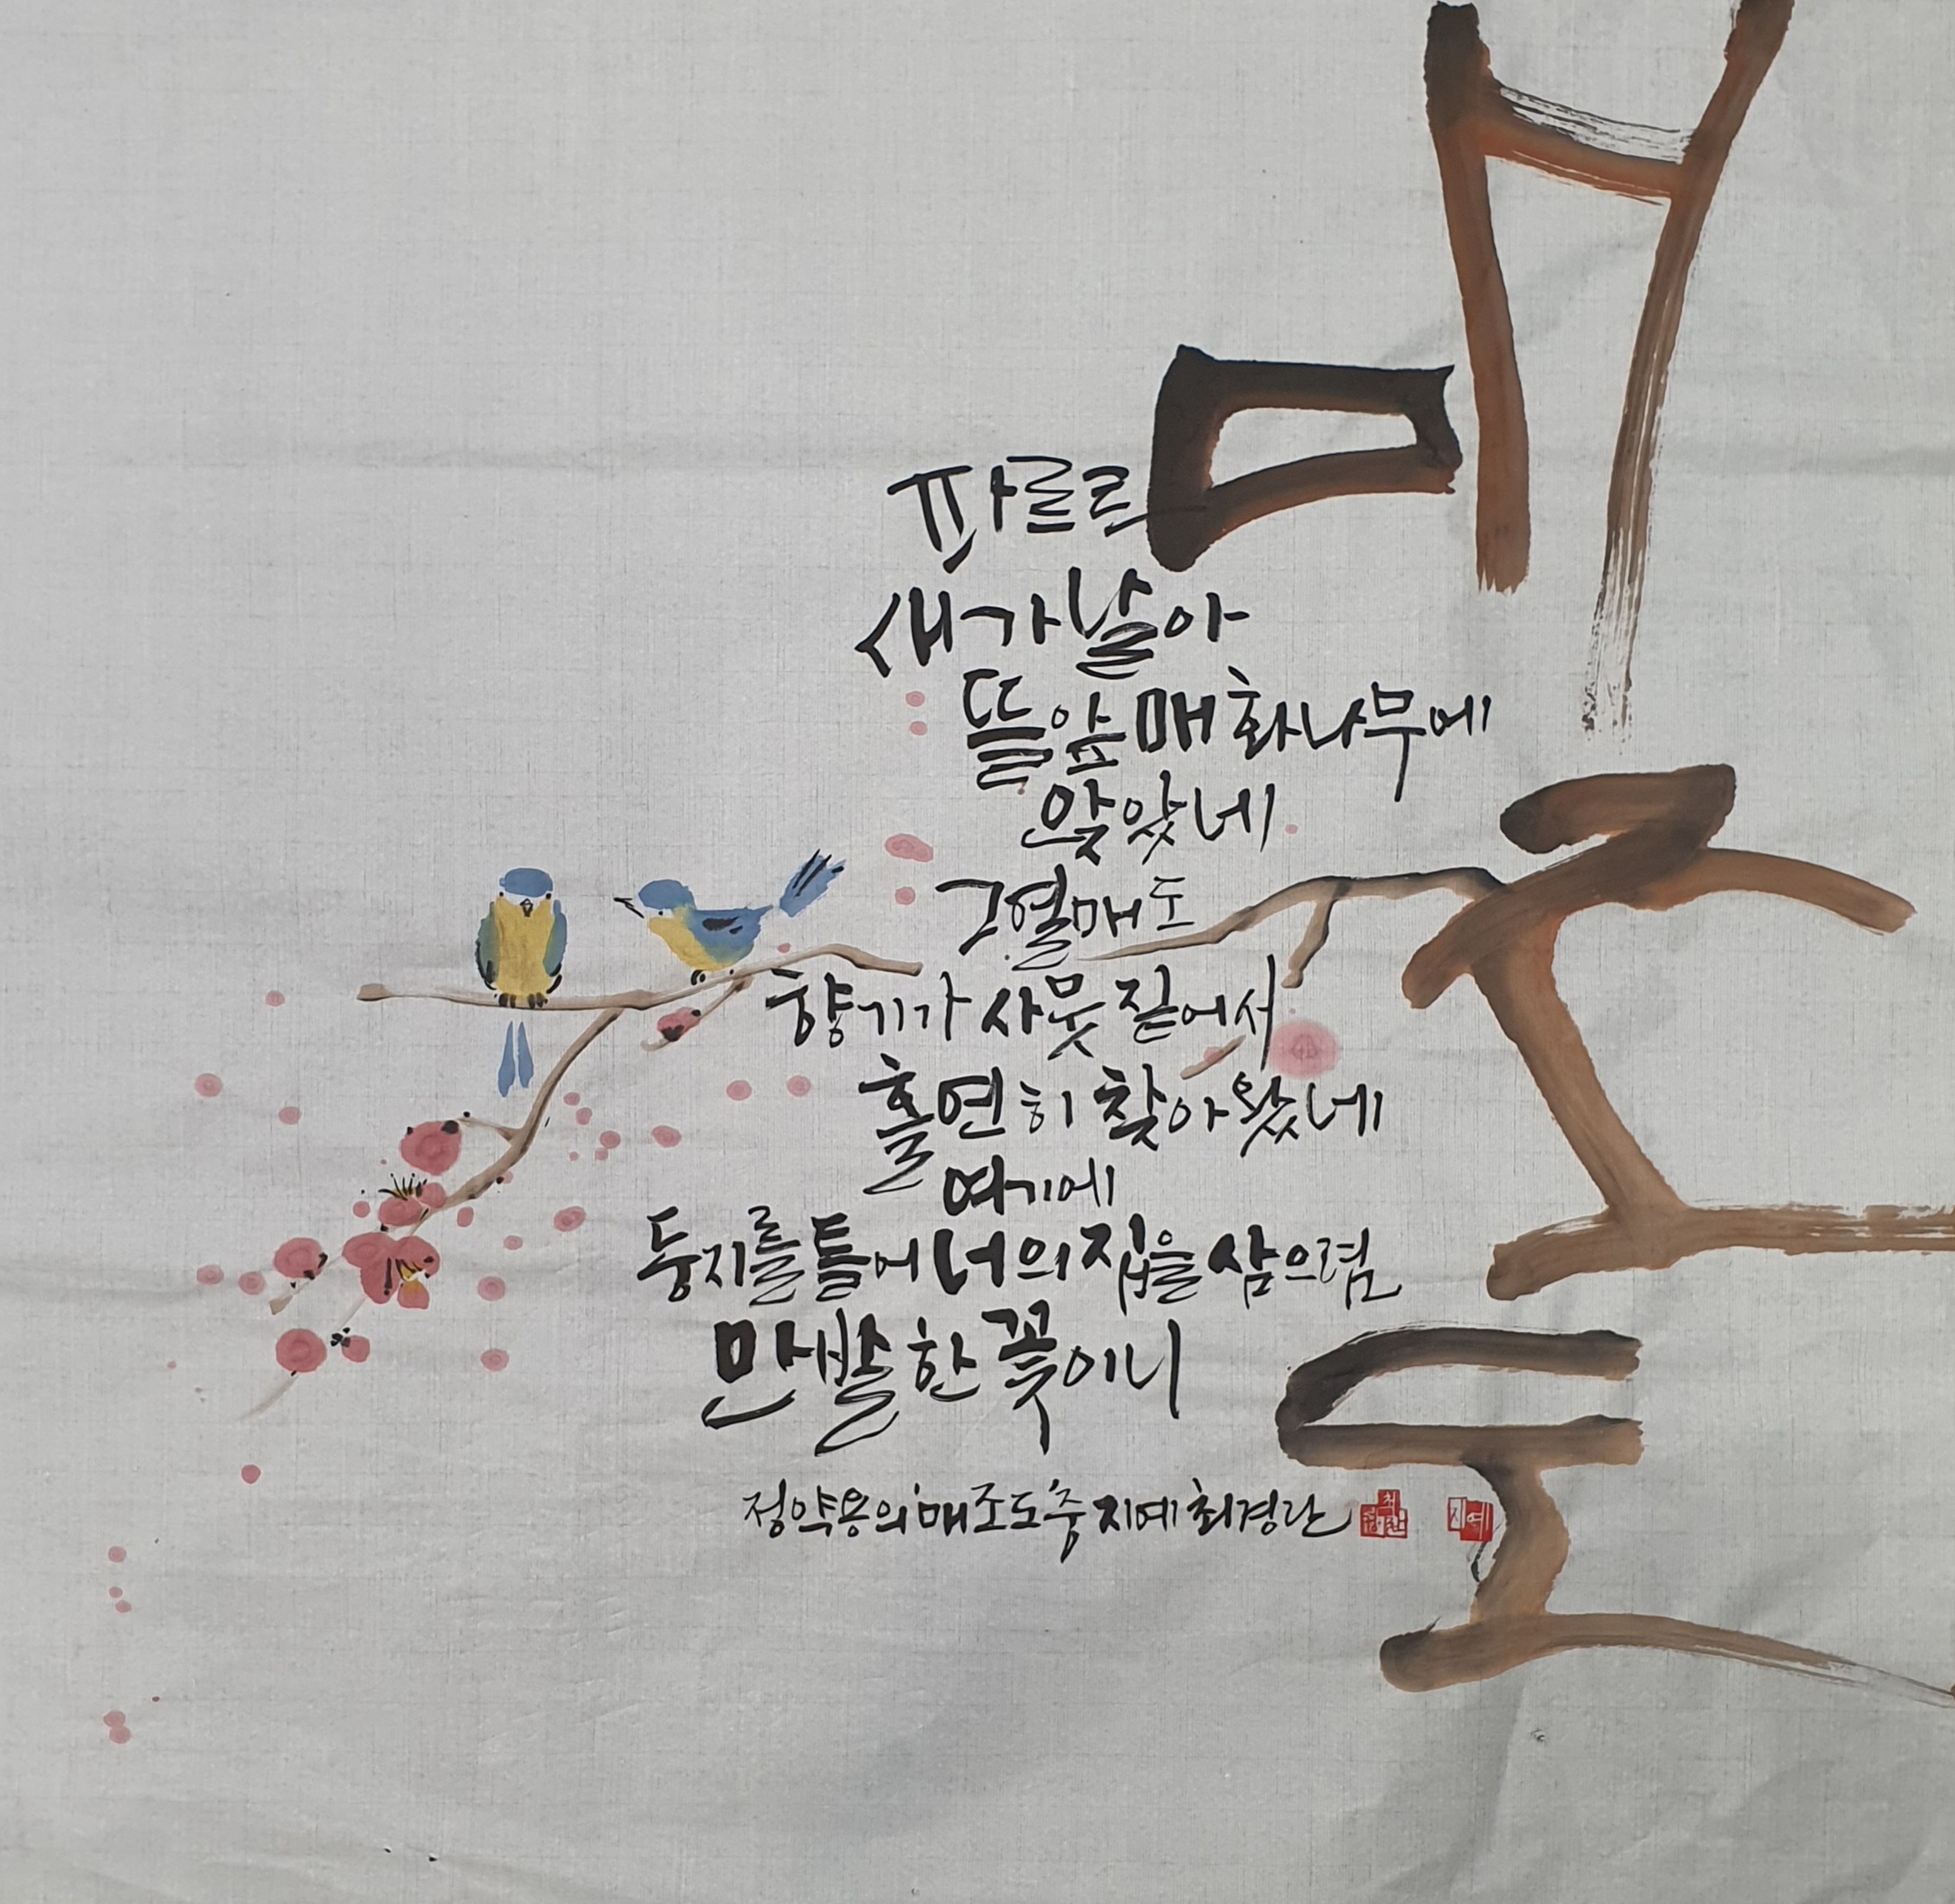 매조도
파르르
새가 날아
뜰앞 매화나무에
앉았네
그 열매도
향기가 사뭇 짙어서
홀연히 찾아왔네
여기에
둥지를 틀어 너의 집을 삼으렴
만발한 꽃이니
정약용의 '매조도' 중 지예 최경란